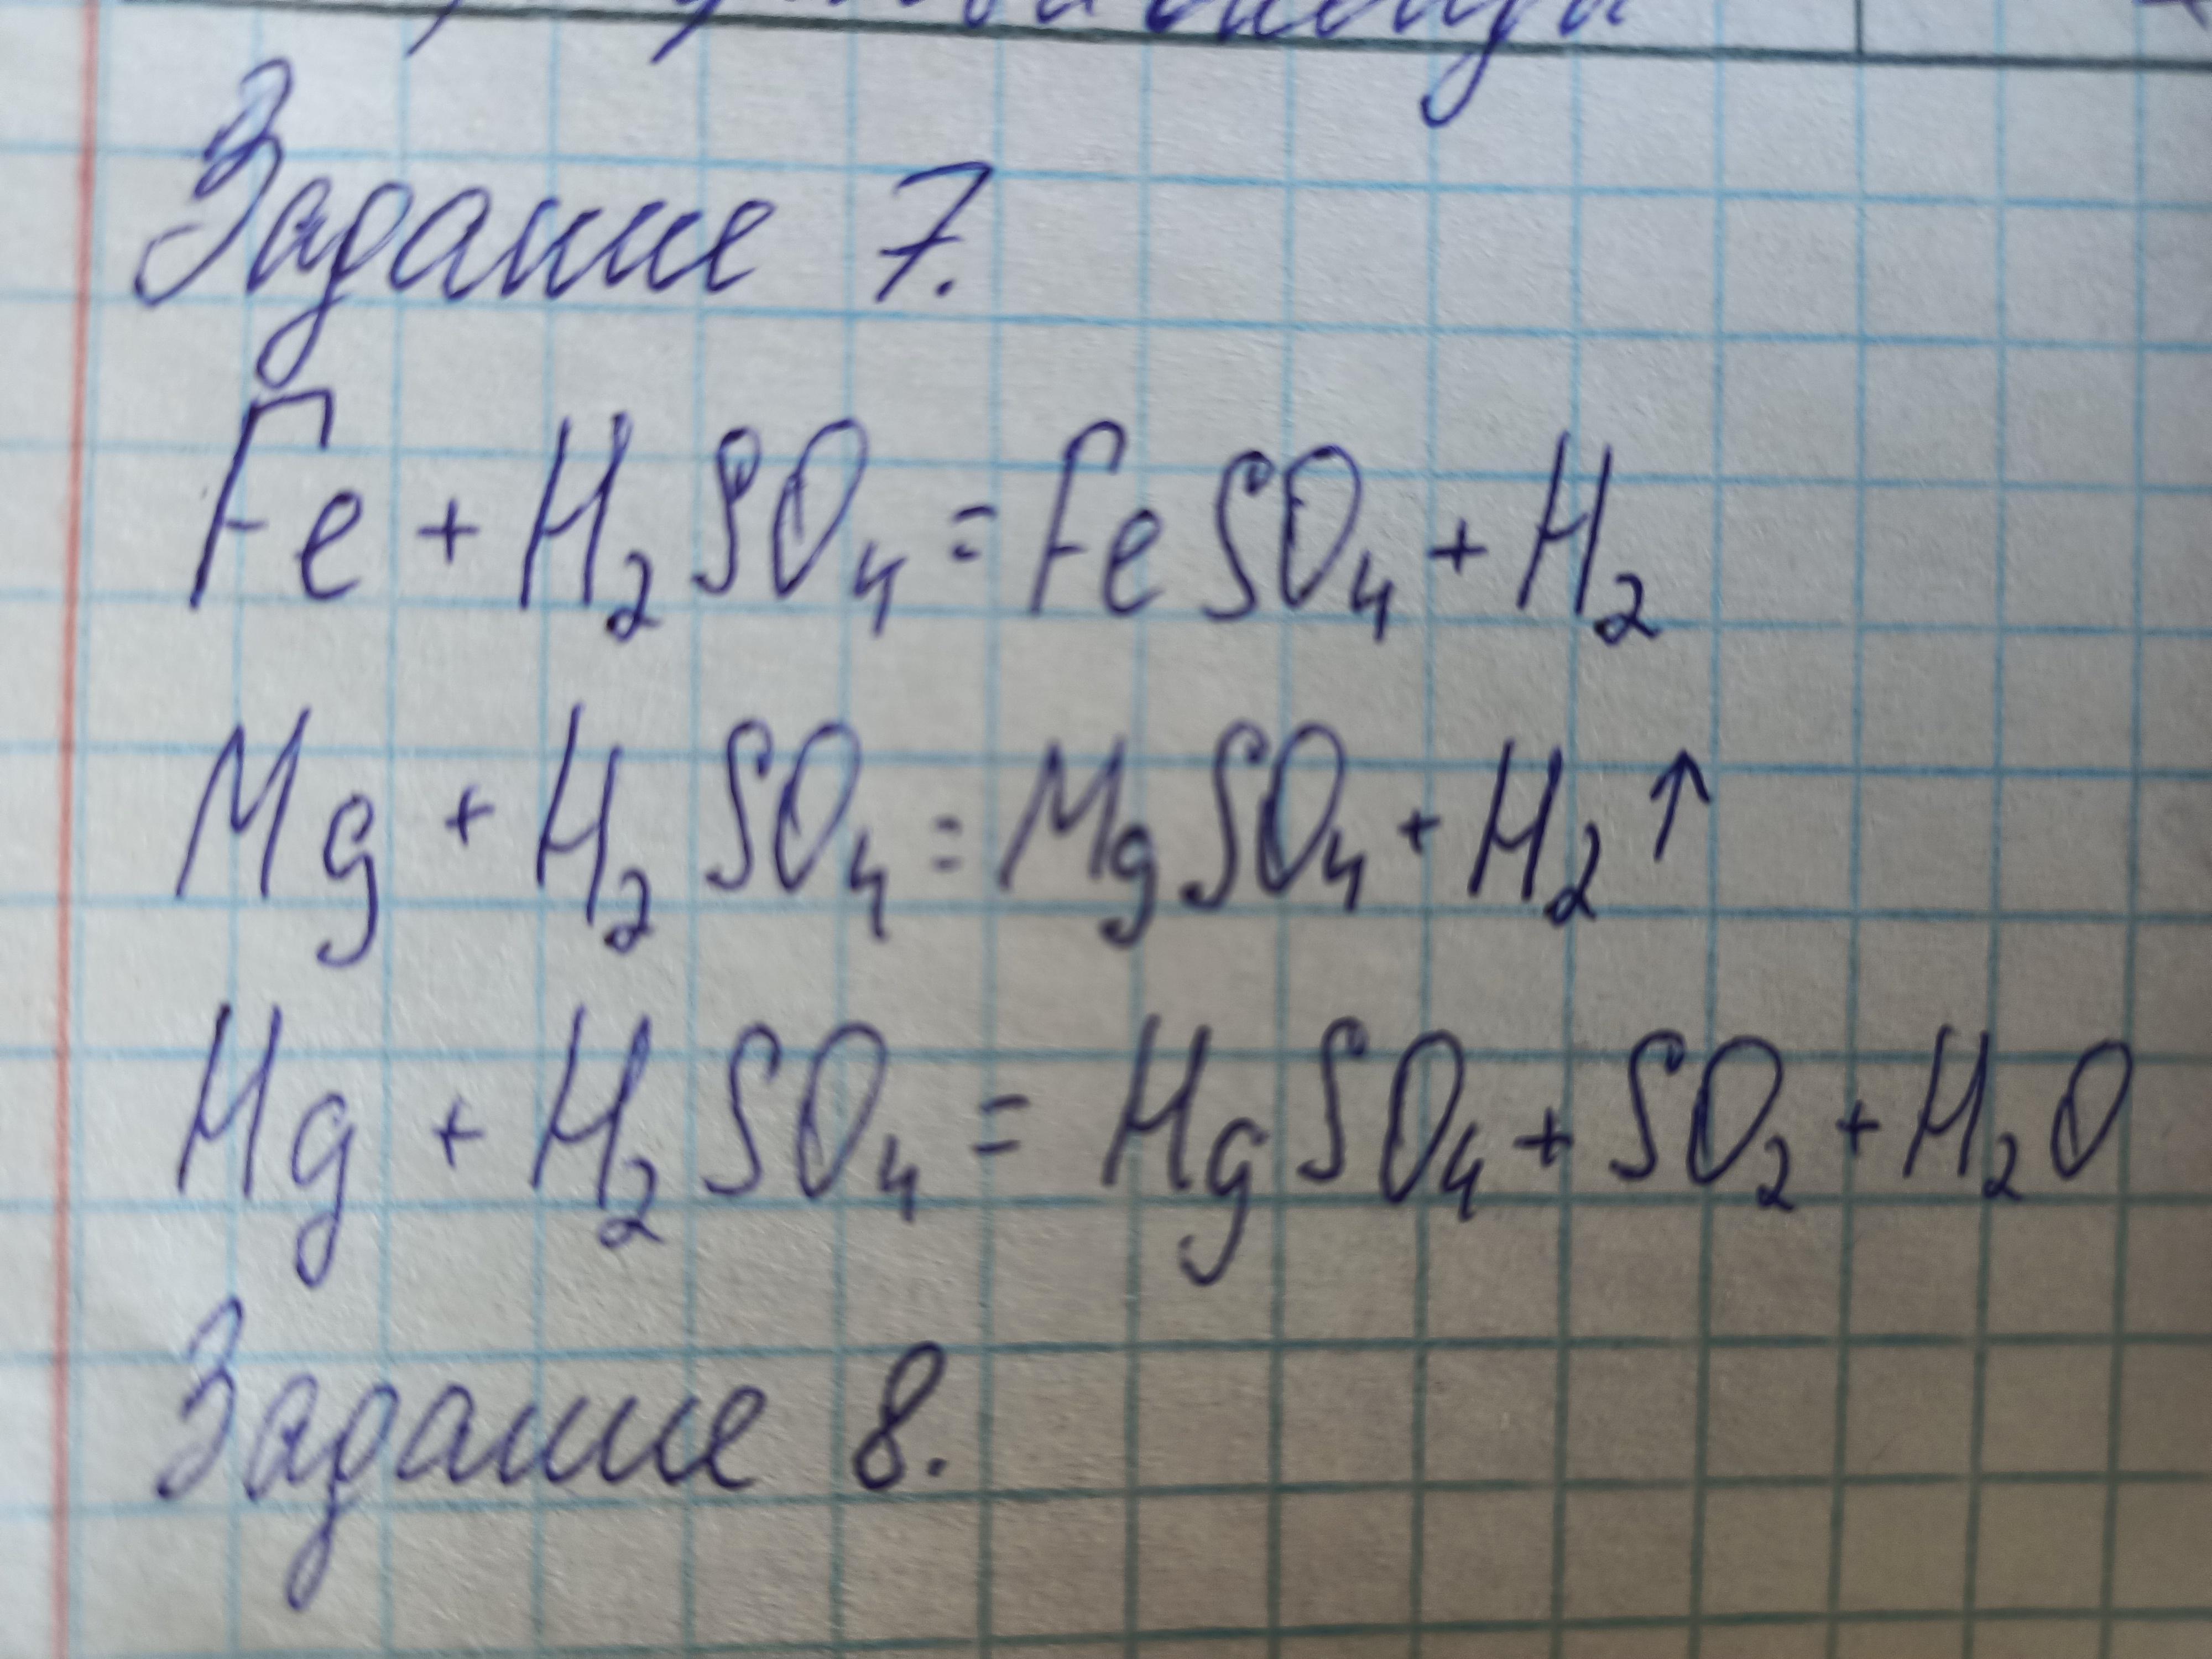 Задание 7.
Fe + H₂SO₄ = FeSO₄ + H₂
Mg + H₂SO₄ = MgSO₄ + H₂↑
Hg + H₂SO₄ = HgSO₄ + SO₂ + H₂O
Задание 8.